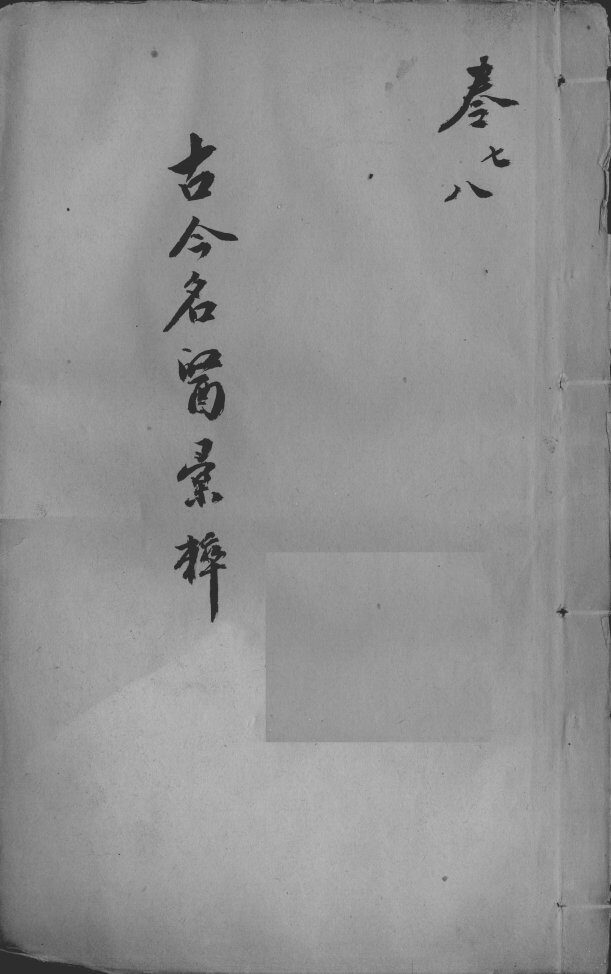 卷七八
古今名醫彙粹